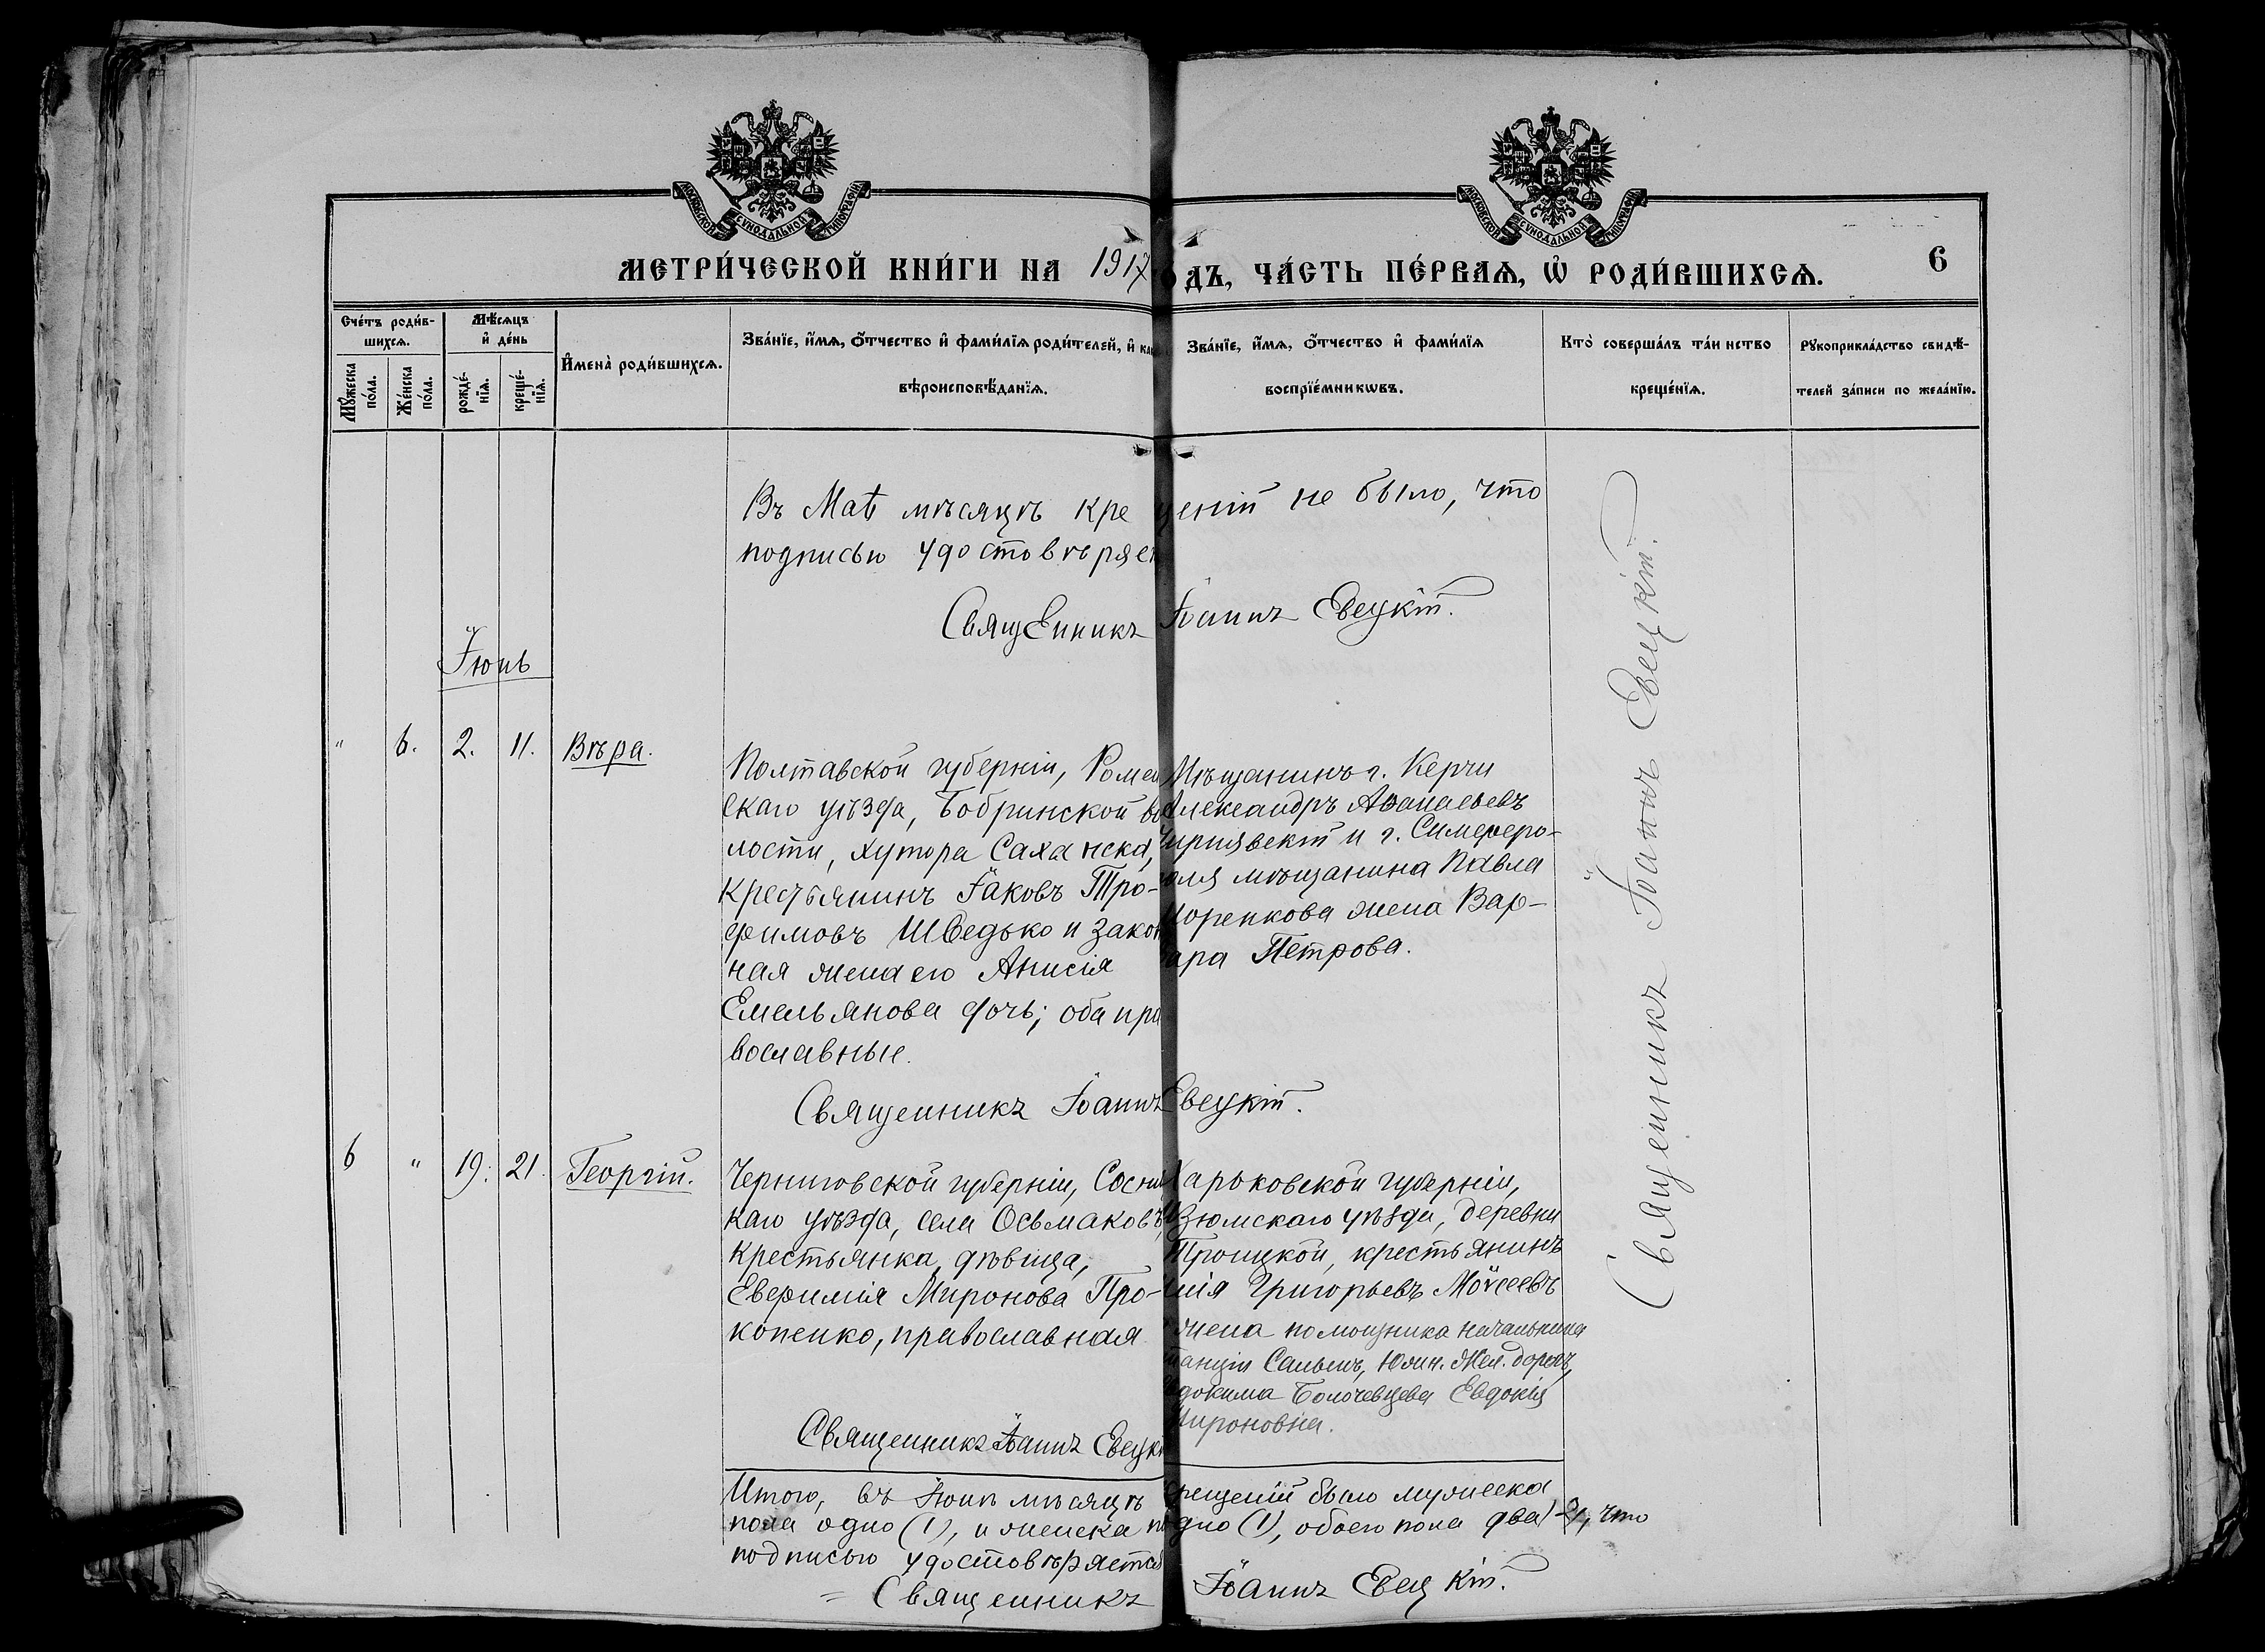 МОСКОВСКОЙ СУНОДАЛЬНОЙ ТИПОГРАФІИ
МОСКОВСКОЙ СУНОДАЛЬНОЙ ТИПОГРАФІИ
МЕТРИ́ЧЕСКОЙ КНИ́ГИ НА 1917
ДЪ, ЧА́СТЬ ПЕ́РВАѦ, Ѡ҆ РОДИ́ВШИХСѦ.
6
Сче́тъ роди́в-
шихсѧ.
Мꙋ́жеска по́ла.
Же́нска по́ла.
Мѣ́сѧцъ
и҆ де́нь
рожде́-нїѧ.
креще́-нїѧ.
И҆мена̀ роди́вшихсѧ.
Зва́нїе, и҆́мѧ, ѻ҆́тчество и҆ фами́лїѧ роди́телей, и҆
вѣроисповѣ́данїѧ.
Зва́нїе, и҆́мѧ, ѻ҆́тчество и҆ фами́лїѧ
воспрїе́мникѡвъ.
Кто̀ соверша́лъ та́инство
креще́нїѧ.
Рꙋкоприкла́дство свидѣ́-
телей за́писи по жела́нїю.
Въ Маѣ мѣсяцѣ кре щеній не было, что
подписью удостовѣряе
Священникъ Іоаннъ Евецкій.
Іюнь
" 6. 2. 11. Вѣра.
Полтавской губерніи, Ромен
скаго уѣзда, Бобринской во
лости, хутора Саханска,
крестьянинъ Іаковъ Тро-
фимовъ Шведько и закон
ная жена его Анисія
Емельянова дочь; оба пра
вославные.
Священникъ Іоаннъ Евецкій.
Мѣщанинъ г. Керчи
Александръ Аѳанасьевъ
Чирнявскій и г. Симферо-
поля мѣщанина Павла
Моренкова жена Вар-
вара Петрова.
6 " 19. 21. Георгій.
Черниговской губерніи, Сосниц
каго уѣзда, села Осьмаковъ,
крестьянка, дѣвица,
Евфимія Миронова Про-
копенко, православная
Священникъ Іоаннъ Евецкі
Харьковской губерніи,
Изюмскаго уѣзда, деревни
Троицкой, крестьянинъ
Григорьевъ Моѵсеевъ
жена помощника начальника
станціи Салынь, Южн. Жел. дорогъ,
Евдокима Болочевцева Евдокія
Мироновна.
Итого, въ Іюнѣ мѣсяцѣ крещеній было мужеска
пола одно (1), и женска по дно (1), обоего пола два) 2), что
подписью удостовѣряетсѧ
Священникъ Іоаннъ Евецкій.
Священникъ Іоаннъ Евецкій.